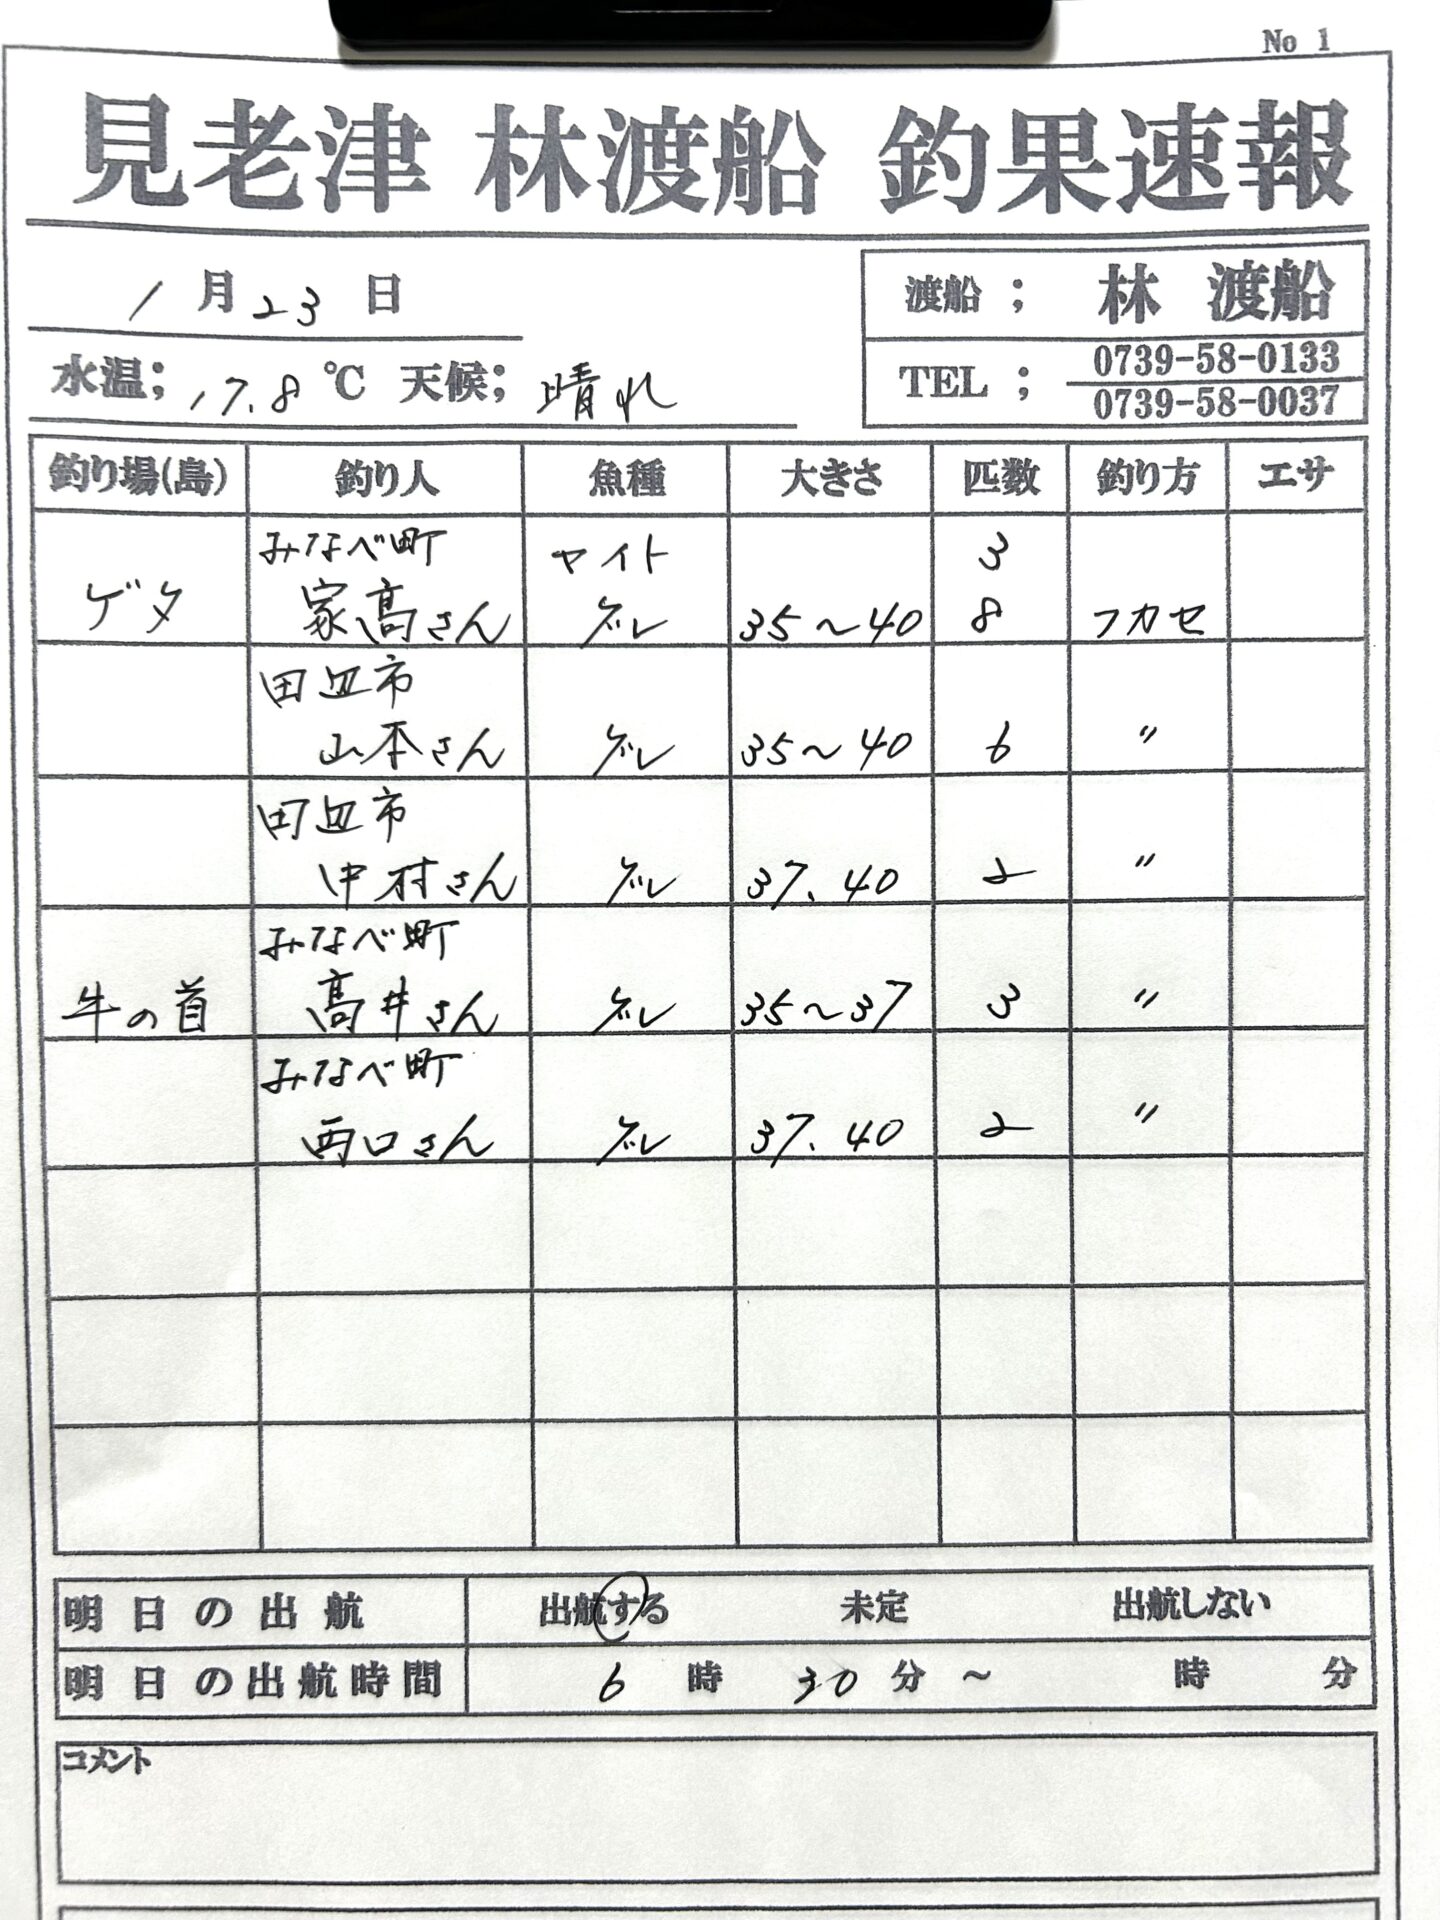 No 1
見老津 林渡船 釣果速報
1月23日
渡船 ; 林 渡船
水温; 17.8 ℃ 天候; 晴れ
TEL ; 0739-58-0133
0739-58-0037
釣り場(島) 釣り人 魚種 大きさ 匹数 釣り方 エサ
みなべ町 ヤイト 3
ゲタ 家高さん グレ 35～40 8 フカセ
田辺市
山本さん グレ 35～40 6 〃
田辺市
中村さん グレ 37、40 2 〃
みなべ町
牛の首 高井さん グレ 35～37 3 〃
みなべ町
西口さん グレ 37、40 2 〃
明日の出航 出航する 未定 出航しない
明日の出航時間 6 時 30 分 ～ 時 分
コメント